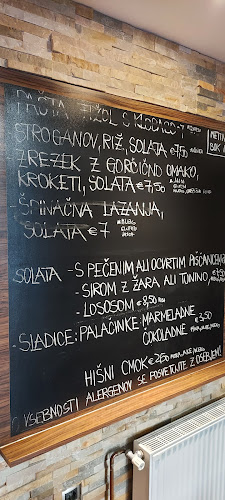 PAŠTA FIŽOL S KLOBASO
STROGANOV, RIŽ, SOLATA €7,50
ZREZEK Z GORČIČNO OMAKO,
KROKETI, SOLATA €7,50
ŠPINAČNA LAZANJA,
SOLATA €7
SOLATA - S PEČENIM ALI OCVRTIM PIŠČANCEM
- SIROM Z ŽARA ALI TUNINO,
- LOSOSOM €8,50
- SLADICE: PALAČINKE: MARMELADNE €3,50
ČOKOLADNE
HIŠNI CMOK €2,50
O VSEBNOSTI ALERGENOV SE POSVETUJTE Z OSEBJEM!